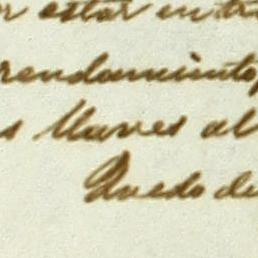 estar en
rendamiento,
s llaves al
Quedo de